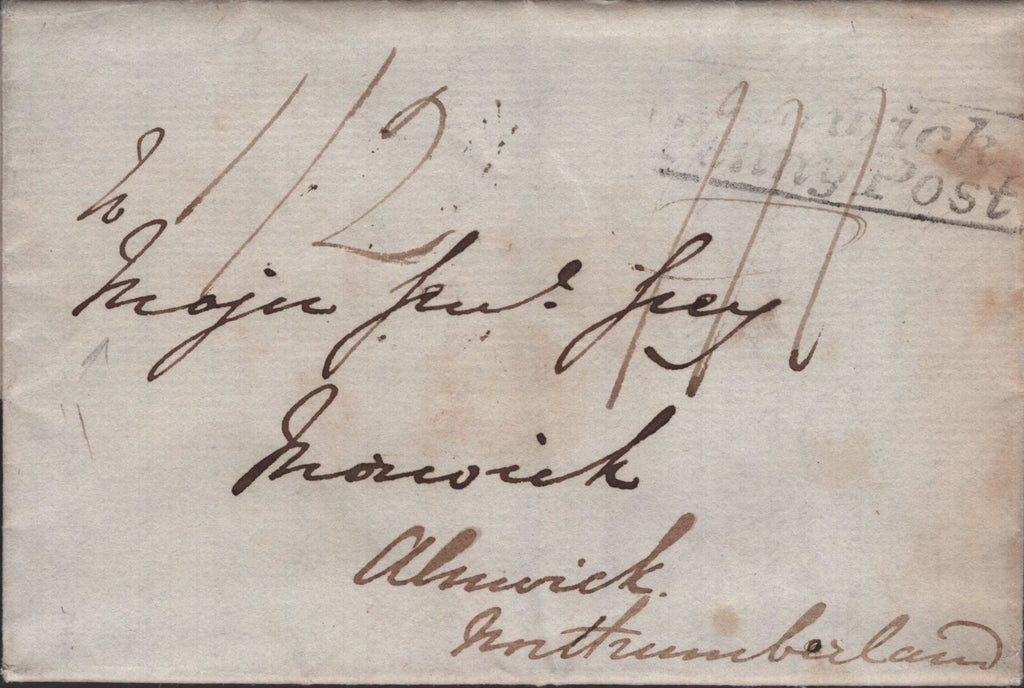 Alnwick
Penny Post
1/2
To
Major Genl. Grey
Morwick
Alnwick.
Northumberland